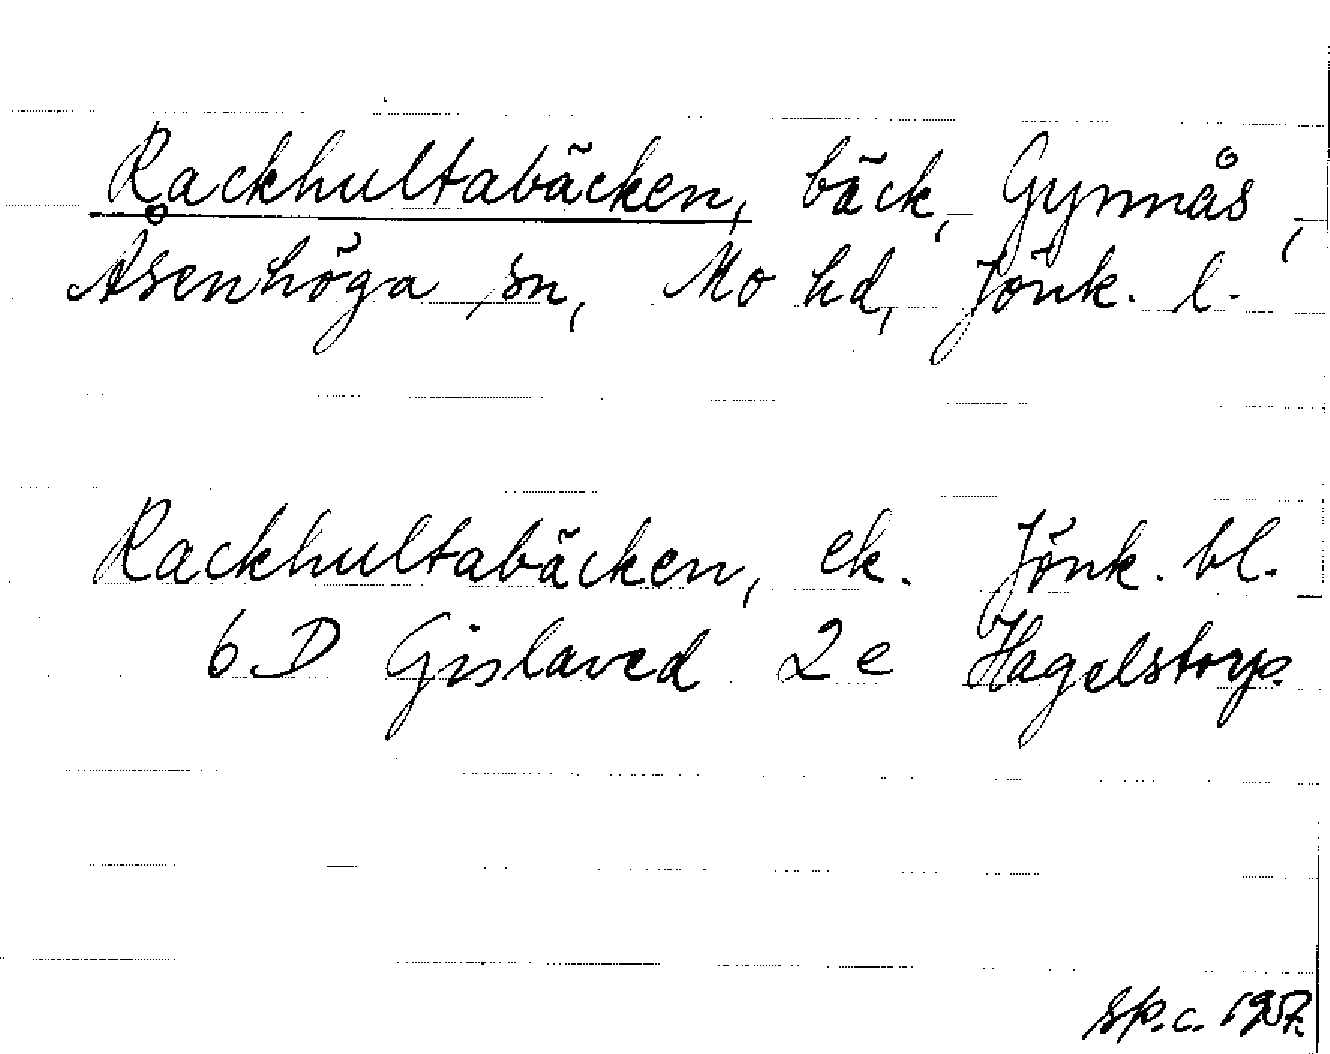 Rackhultabäcken, bäck, Gynnås,
Åsenhöga sn, Mo hd, Jönk. l.
Rackhultabäcken, ek. Jönk. bl.
6 D Gislaved 2 e Hagelstorp.
sp.c. 1957.